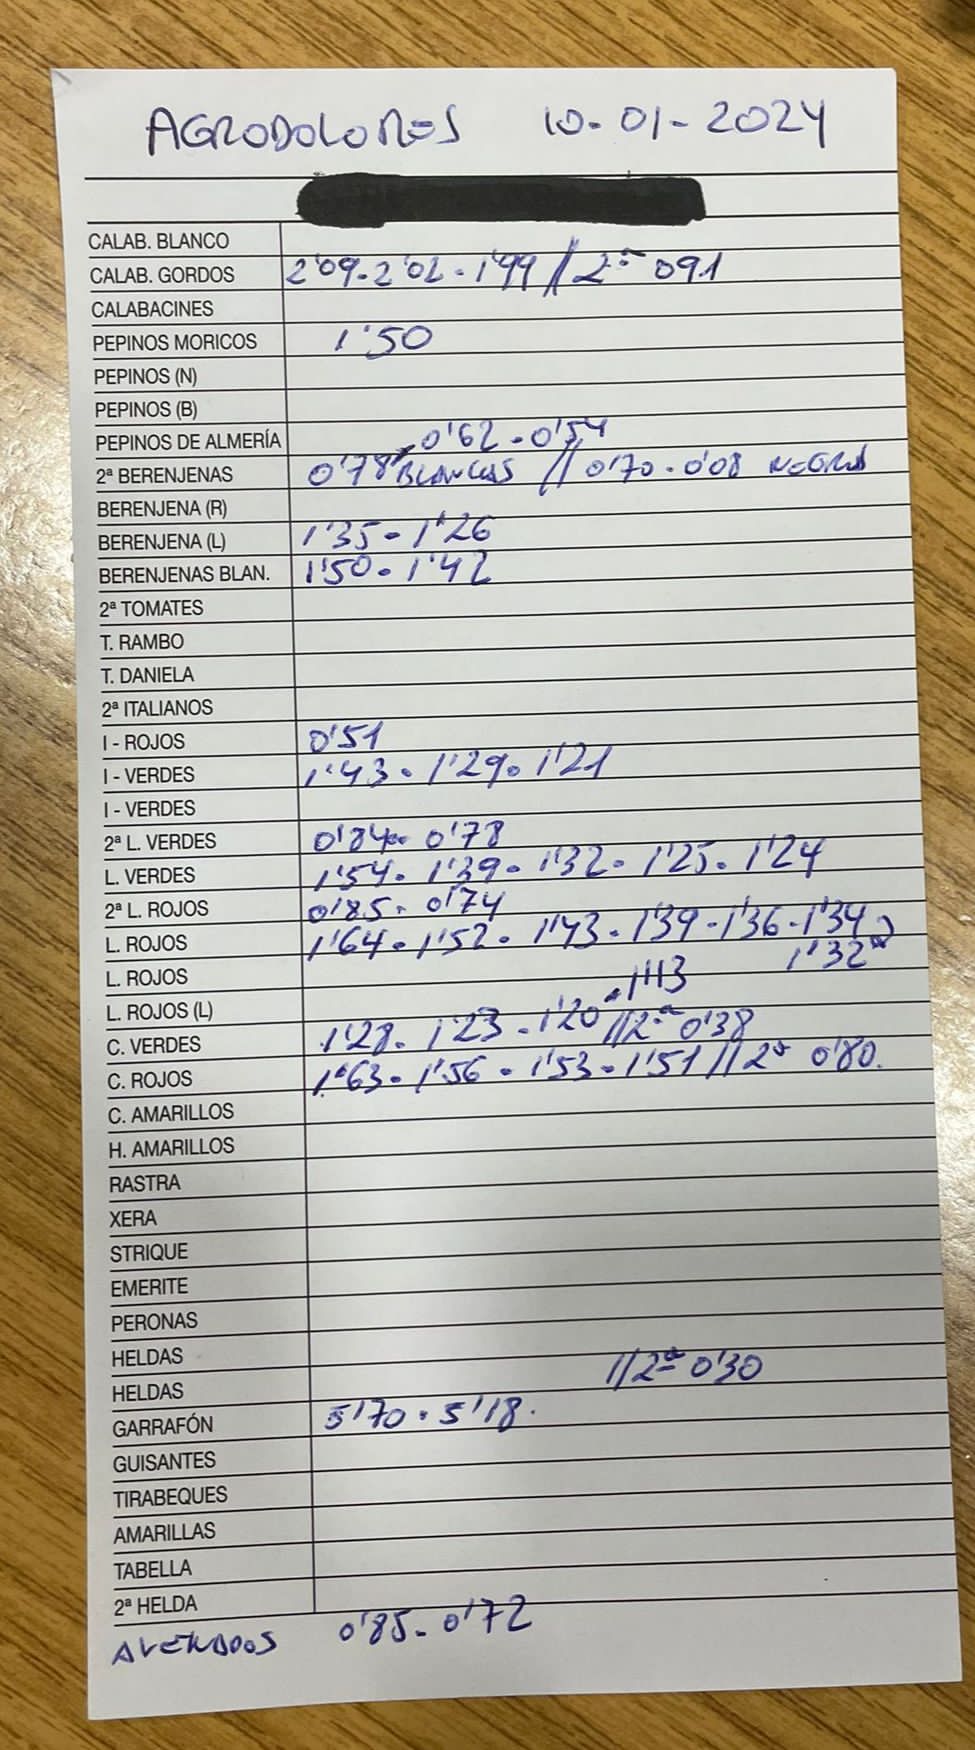 AGRODOLORES 10-01-2024
CALAB. BLANCO
CALAB. GORDOS 2'09-2'02-1'99 // 2ª 091
CALABACINES
PEPINOS MORICOS 1'50
PEPINOS (N)
PEPINOS (B)
PEPINOS DE ALMERÍA
0'62-0'54
2ª BERENJENAS 0'78 BLANCAS // 0'70-0'08 NEGRAS
BERENJENA (R)
BERENJENA (L) 1'35-1'26
BERENJENAS BLAN. 1'50-1'42
2ª TOMATES
T. RAMBO
T. DANIELA
2ª ITALIANOS
I - ROJOS 0'51
I - VERDES 1'43-1'29-1'21
I - VERDES
2ª L. VERDES 0'84-0'78
L. VERDES 1'54-1'39-1'32-1'25-1'24
2ª L. ROJOS 0'85-0'74
L. ROJOS 1'64-1'52-1'43-1'39-1'36-1'34
L. ROJOS 1'32
L. ROJOS (L) 1'13
C. VERDES 1'28-1'23-1'20 // 2ª 0'38
C. ROJOS 1'63-1'56-1'53-1'51 // 2ª 0'80.
C. AMARILLOS
H. AMARILLOS
RASTRA
XERA
STRIQUE
EMERITE
PERONAS
HELDAS
HELDAS // 2ª 0'30
GARRAFÓN 5'70-5'18.
GUISANTES
TIRABEQUES
AMARILLAS
TABELLA
2ª HELDA
0'85-0'72